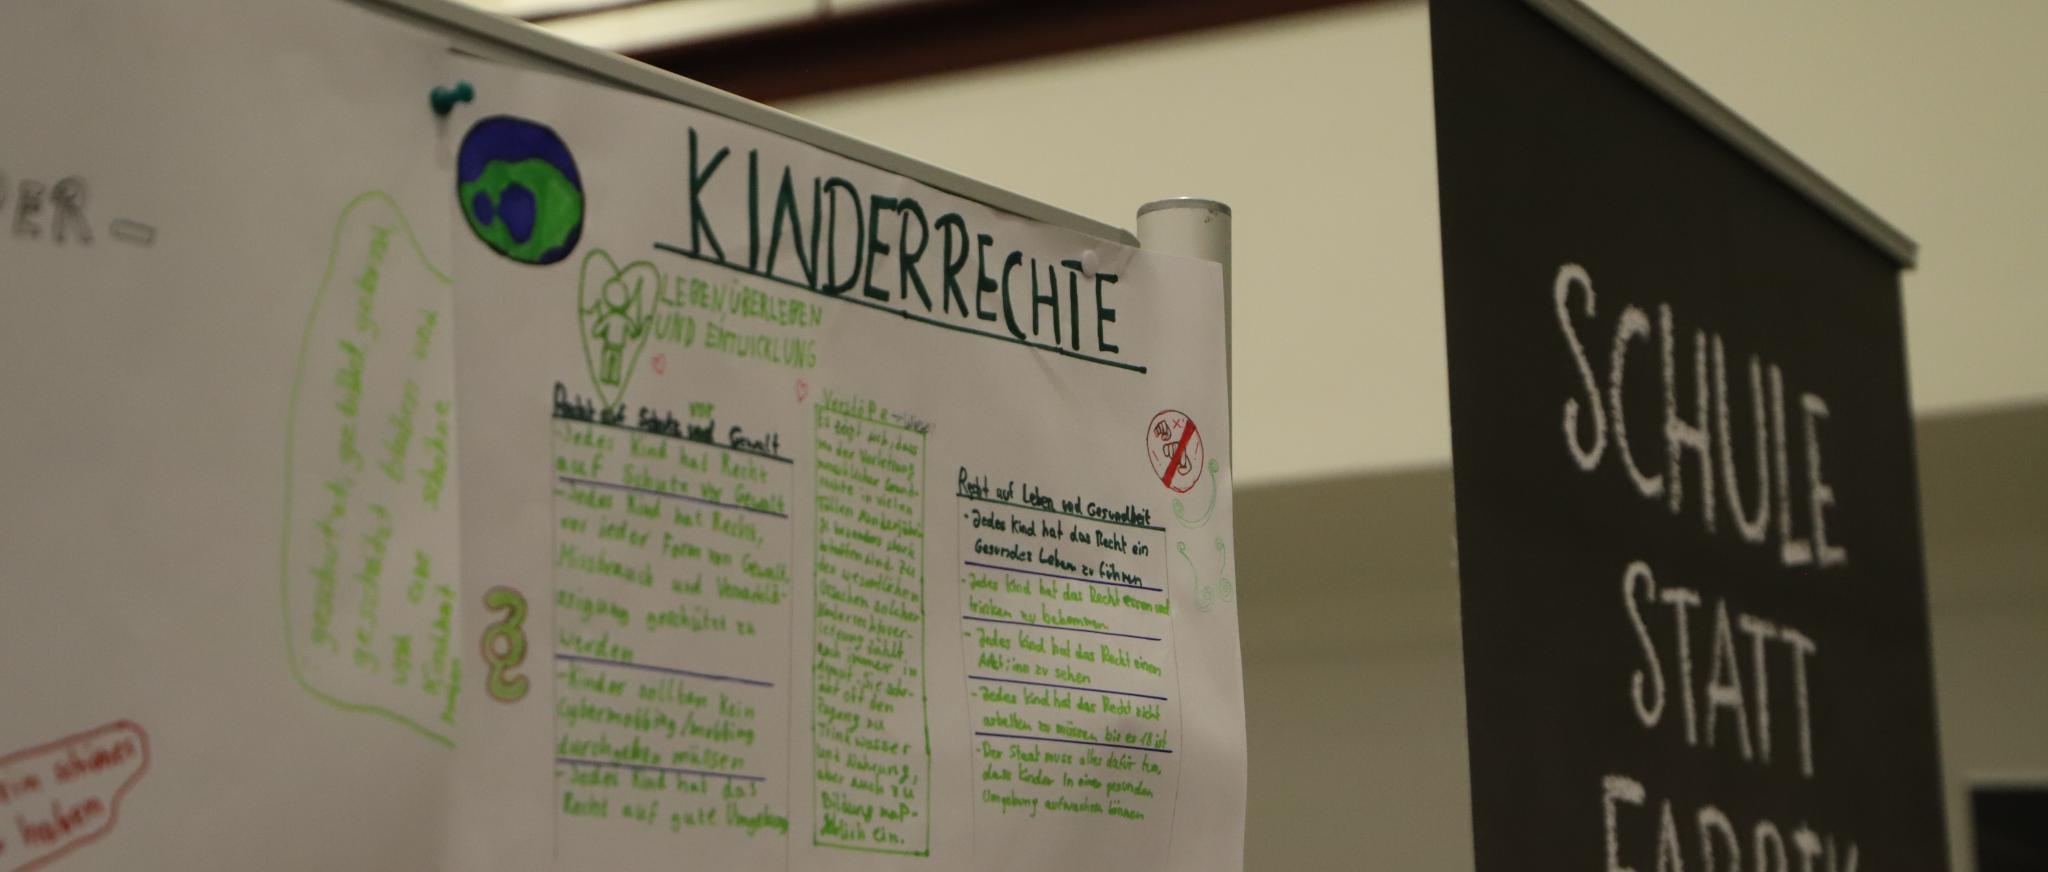 ER-
geschützt, geliebt, gelernt,
geschätzt bleiben und
und eine schöne
Kindheit
haben
KINDERRECHTE
LEBEN, ÜBERLEBEN
UND ENTWICKLUNG
Recht auf Schutz vor und Gewalt
-Jedes Kind hat Recht
auf Schutz vor Gewalt
-Jedes Kind hat Recht,
vor jeder Form von Gewalt,
Missbrauch und Vernachlä-
ssigung geschützt zu
werden
-Kinder sollten kein
Cybermobbing/mobbing
durchgehen müssen
-Jedes Kind hat das
Recht auf gute Umgebung
Verstöße
Es zeigt sich, dass
von der Verletzung
menschlicher Grund-
rechte in vielen
Fällen Minderjährige
besonders stark
betroffen sind. Zu
den wesentlichen
Ursachen solcher
Kinderrechtsver-
letzung zählt
noch immer die
Armut. Sie schr-
änkt oft den
Zugang zu
Trinkwasser
und Nahrung,
aber auch zu
Bildung maß-
geblich ein.
Recht auf Leben und Gesundheit
-Jedes Kind hat das Recht ein
Gesundes Leben zu führen
-Jedes Kind hat das Recht essen und
trinken zu bekommen
-Jedes Kind hat das Recht einen
Arzt;inn zu sehen
-Jedes Kind hat das Recht nicht
arbeiten zu müssen bis es 18 ist
-Der Staat muss alles dafür tun,
dass Kinder in einer gesunden
Umgebung aufwachsen können
schönen
haben
SCHULE
STATT
FABRIK